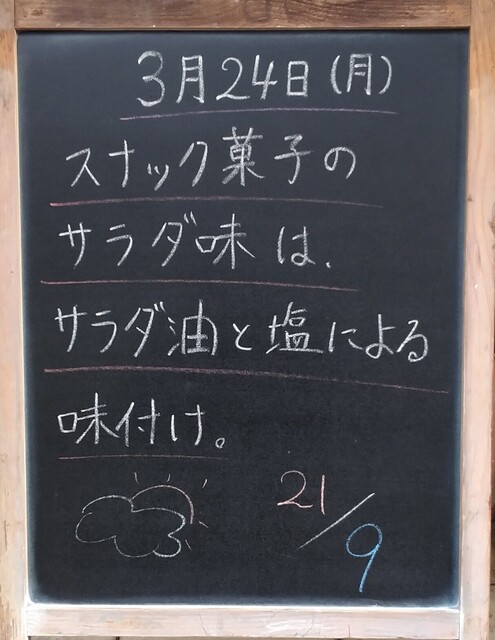 3月24日(月)
スナック菓子の
サラダ味は、
サラダ油と塩による
味付け。
21/9